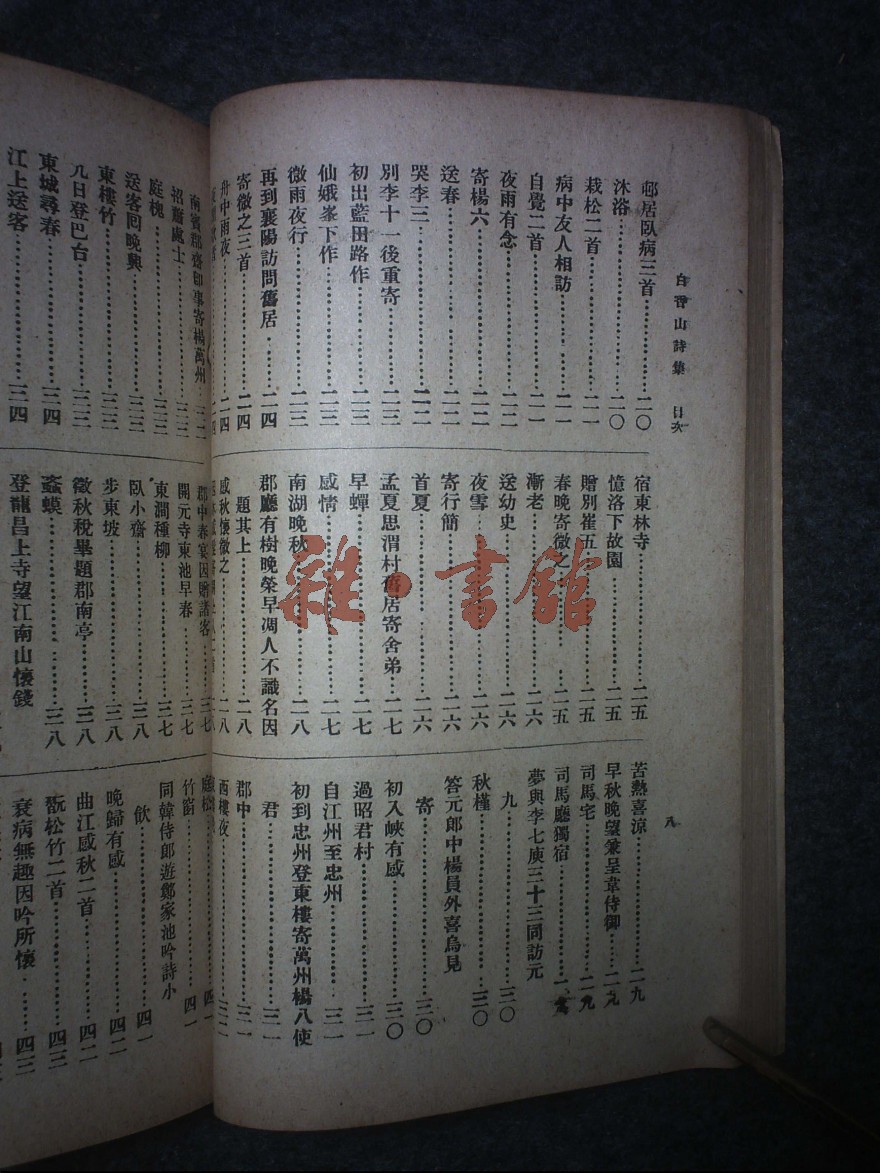 白香山詩集 目次
八
邨居臥病三首……二〇
沐浴……二〇
栽松二首……二一
病中友人相訪……二一
自覺二首……二一
夜雨有念……二二
寄楊六……二二
送春……二二
哭李三……二二
別李十一後重寄……二三
初出藍田路作……二三
仙娥峯下作……二三
微雨夜行……二三
再到襄陽訪問舊居……二四
寄微之三首……二四
舟中雨夜……二四
宿東林寺……二五
憶洛下故園……二五
贈別崔五……二五
春晚寄微之……二五
漸老……二六
送幼史……二六
夜雪……二六
寄行簡……二六
首夏……二六
孟夏思渭村舊居寄舍弟……二七
早蟬……二七
感情……二七
南湖晚秋……二八
郡廳有樹晚榮早凋人不識名因
題其上……二八
感秋懷微之……二八
苦熱喜涼……二九
早秋晚望兼呈韋侍御……二九
司馬宅……二九
司馬廳獨宿……二九
夢與李七庾三十三同訪元
九……三〇
秋槿……三〇
答元郎中楊員外喜烏見
寄……三〇
初入峽有感……三〇
過昭君村……三一
自江州至忠州……三一
初到忠州登東樓寄萬州楊八使
君……三一
郡中……三一
西樓夜……三二
南賓郡齋卽事寄楊萬州……三二
招蕭處士……三三
庭槐……三三
送客回晚興……三三
東樓竹……三三
九日登巴台……三三
東城尋春……三四
江上送客……三四
郡中春宴因贈諸客……三七
開元寺東池早春……三七
東澗種柳……三七
臥小齋……三八
步東坡……三八
徵秋稅畢題郡南亭……三八
蚉蟆……三八
登龍昌上寺望江南山懷錢
庭松……四一
竹窗……四一
同韓侍郎遊鄭家池吟詩小
飲……四一
晚歸有感……四二
曲江感秋二首……四二
翫松竹二首……四三
衰病無趣因吟所懷……四三
雜·書館